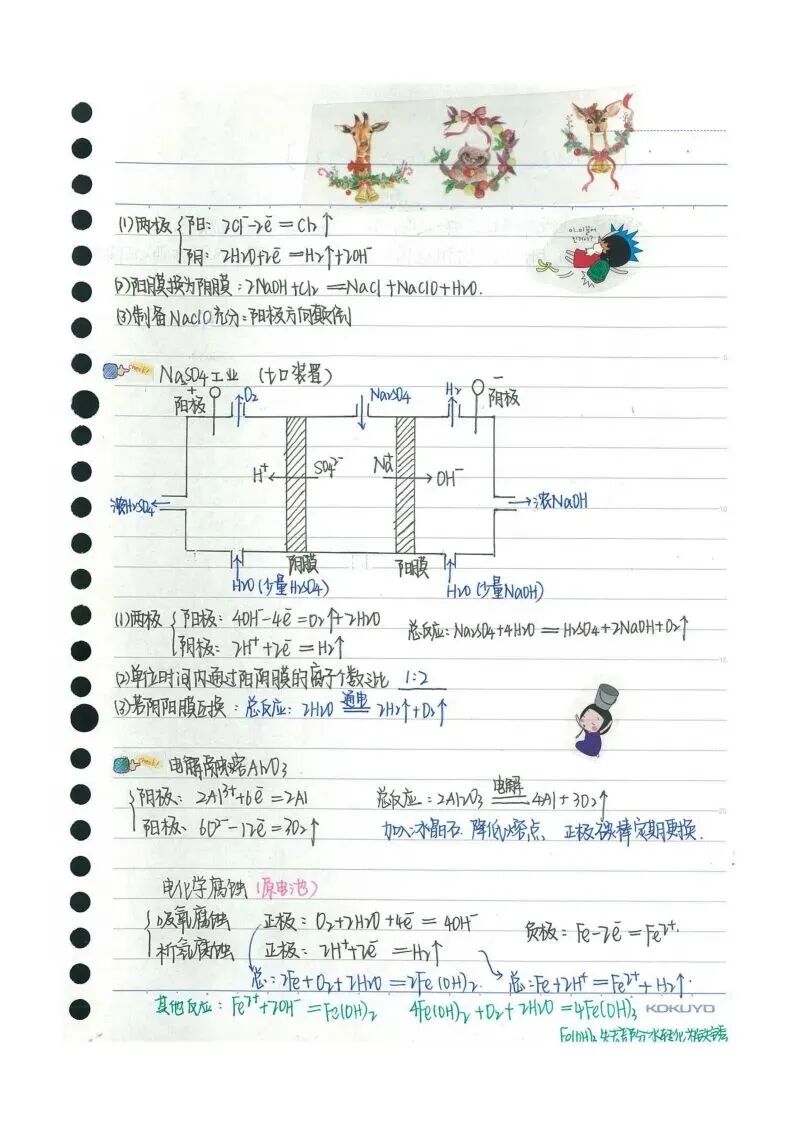 (1)两极 { 阳: 2Cl⁻-2e⁻=Cl₂↑
阴: 2H₂O+2e⁻=H₂↑+2OH⁻
(2)阳膜换为阴膜: 2NaOH+Cl₂=NaCl+NaClO+H₂O.
(3)制备NaClO充分: 阳极方向颠倒
Check! Na₂SO₄工业 (七口装置)
+ O₂ Na₂SO₄ H₂ -
阳极 阴极
H⁺ SO₄²⁻ Na⁺ OH⁻
浓H₂SO₄ 浓NaOH
阴膜 阳膜
H₂O(少量H₂SO₄) H₂O(少量NaOH)
(1)两极 { 阳极: 4OH⁻-4e⁻=O₂↑+2H₂O 总反应: Na₂SO₄+4H₂O=H₂SO₄+2NaOH+O₂↑
阴极: 2H⁺+2e⁻=H₂↑
(2)单位时间内通过阳阴膜的离子个数之比 1:2
(3)若阴阳膜互换: 总反应: 2H₂O 通电 2H₂↑+O₂↑
Check! 电解熔融Al₂O₃
{ 阴极: 2Al³⁺+6e⁻=2Al 总反应: 2Al₂O₃ 电解 4Al+3O₂↑
阳极: 6O²⁻-12e⁻=3O₂↑ 加入冰晶石 降低熔点, 正极碳棒定期更换.
电化学腐蚀(原电池)
{ 吸氧腐蚀 正极: O₂+2H₂O+4e⁻=4OH⁻ 负极: Fe-2e⁻=Fe²⁺.
析氢腐蚀 正极: 2H⁺+2e⁻=H₂↑
总: 2Fe+O₂+2H₂O=2Fe(OH)₂. 总: Fe+2H⁺=Fe²⁺+H₂↑.
其他反应: Fe²⁺+2OH⁻=Fe(OH)₂ 4Fe(OH)₂+O₂+2H₂O=4Fe(OH)₃
KOKUYO
失去部分水转化为铁锈